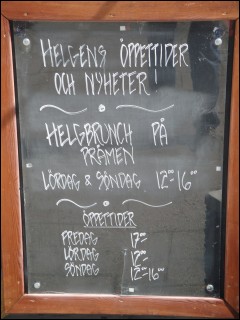 HELGENS ÖPPETTIDER
OCH NYHETER!
HELGBRUNCH PÅ
PRÅMEN
LÖRDAG & SÖNDAG 12-16
ÖPPETTIDER
FREDAG 17-
LÖRDAG 12-
SÖNDAG 12-16